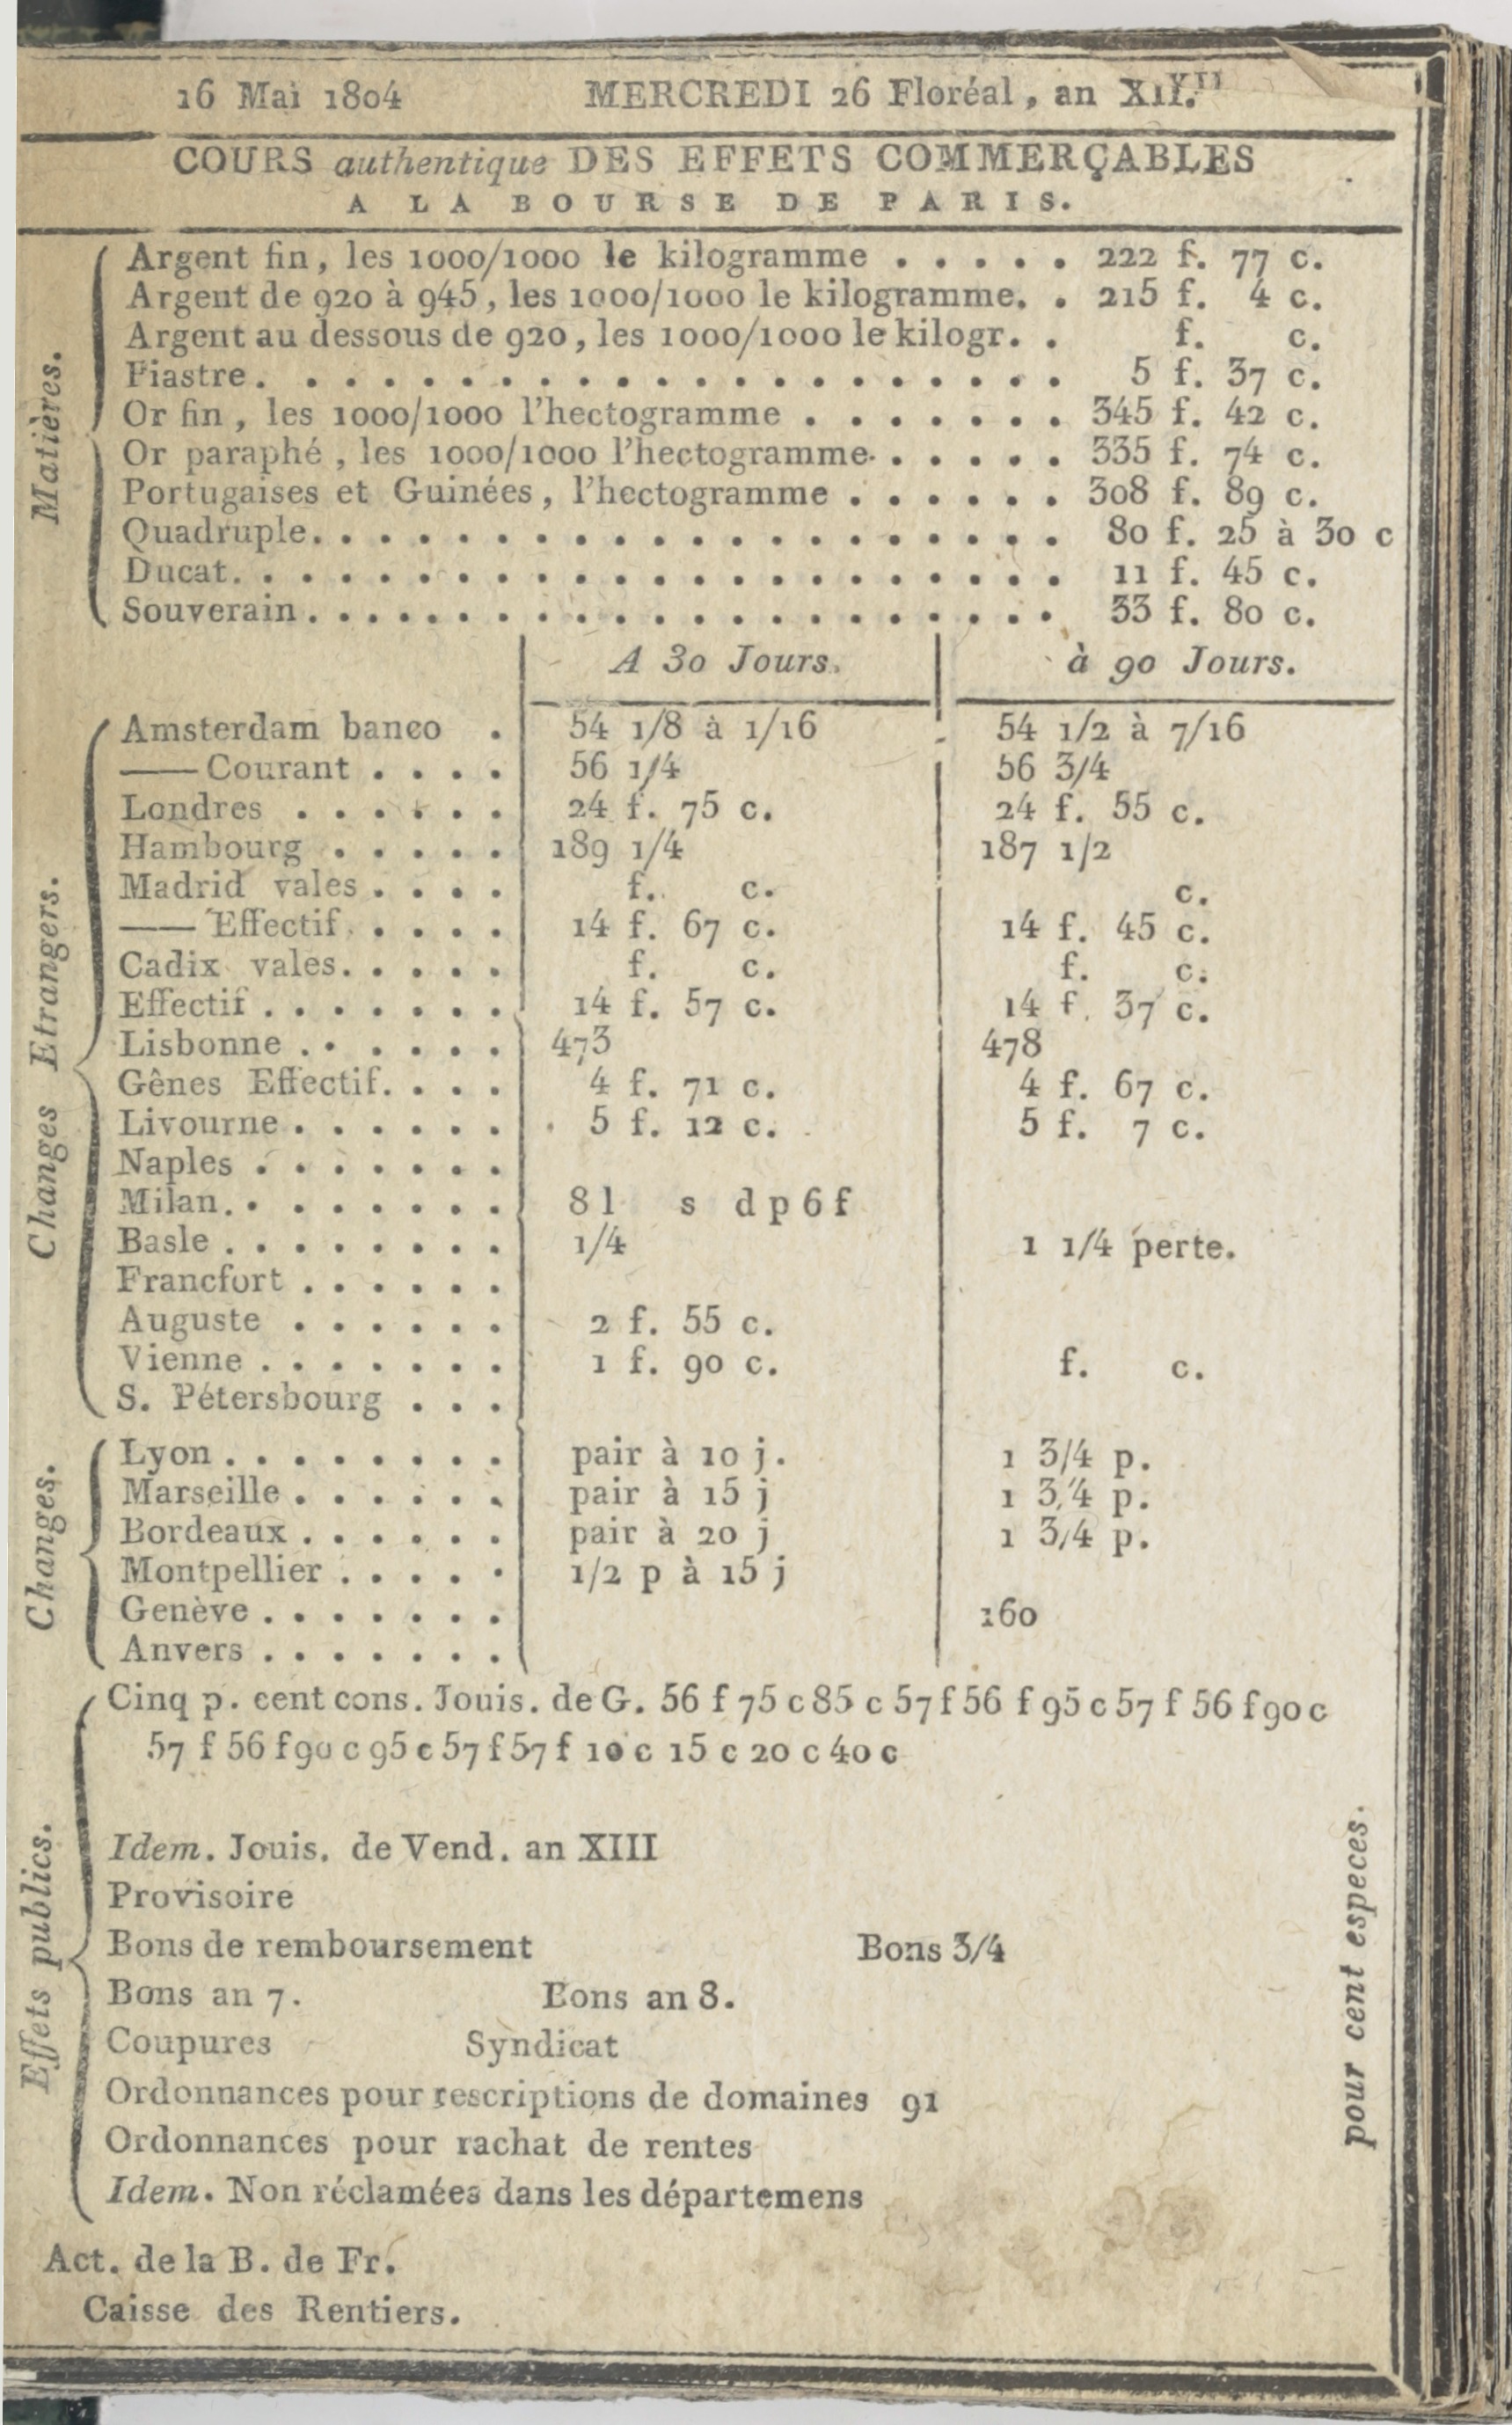 16 Mai 1804 MERCREDI 26 Floréal, an XII.
COURS authentique DES EFFETS COMMERÇABLES
A LA BOURSE DE PARIS.
Matières.
Argent fin, les 1000/1000 le kilogramme . . . . . 222 f. 77 c.
Argent de 920 à 945, les 1000/1000 le kilogramme. . 215 f. 4 c.
Argent au dessous de 920, les 1000/1000 le kilogr. . f. c.
Piastre. . . . . . . . . . . . . . . . . . . . . 5 f. 37 c.
Or fin, les 1000/1000 l'hectogramme . . . . . . . 345 f. 42 c.
Or paraphé, les 1000/1000 l'hectogramme. . . . . . 335 f. 74 c.
Portugaises et Guinées, l'hectogramme . . . . . . 308 f. 89 c.
Quadruple. . . . . . . . . . . . . . . . . . . . 80 f. 25 à 30 c
Ducat. . . . . . . . . . . . . . . . . . . . . . 11 f. 45 c.
Souverain. . . . . . . . . . . . . . . . . . . . 33 f. 80 c.
A 30 Jours. à 90 Jours.
Changes Etrangers.
Amsterdam banco . 54 1/8 à 1/16 54 1/2 à 7/16
—— Courant . . . . 56 1/4 56 3/4
Londres . . . . . . 24 f. 75 c. 24 f. 55 c.
Hambourg . . . . . 189 1/4 187 1/2
Madrid vales . . . . f. c. c.
—— Effectif . . . . 14 f. 67 c. 14 f. 45 c.
Cadix vales. . . . . f. c. f. c.
Effectif . . . . . . . 14 f. 57 c. 14 f. 37 c.
Lisbonne . . . . . . 473 478
Gênes Effectif. . . . 4 f. 71 c. 4 f. 67 c.
Livourne . . . . . . 5 f. 12 c. 5 f. 7 c.
Naples . . . . . . .
Milan. . . . . . . . 8 l s d p 6 f
Basle . . . . . . . . 1/4 1 1/4 perte.
Francfort . . . . . .
Auguste . . . . . . 2 f. 55 c.
Vienne . . . . . . . 1 f. 90 c. f. c.
S. Pétersbourg . . .
Changes.
Lyon . . . . . . . . pair à 10 j. 1 3/4 p.
Marseille . . . . . . pair à 15 j 1 3/4 p.
Bordeaux . . . . . . pair à 20 j 1 3/4 p.
Montpellier . . . . . 1/2 p à 15 j
Genève . . . . . . . 160
Anvers . . . . . . .
Effets publics.
Cinq p. cent cons. Jouis. de G. 56 f 75 c 85 c 57 f 56 f 95 c 57 f 56 f 90 c
57 f 56 f 90 c 95 c 57 f 57 f 10 c 15 c 20 c 40 c
Idem. Jouis. de Vend. an XIII
Provisoire
Bons de remboursement Bons 3/4
Bons an 7. Bons an 8.
Coupures Syndicat
Ordonnances pour rescriptions de domaines 91
Ordonnances pour rachat de rentes
Idem. Non réclamées dans les départemens
pour cent especes.
Act. de la B. de Fr.
Caisse des Rentiers.